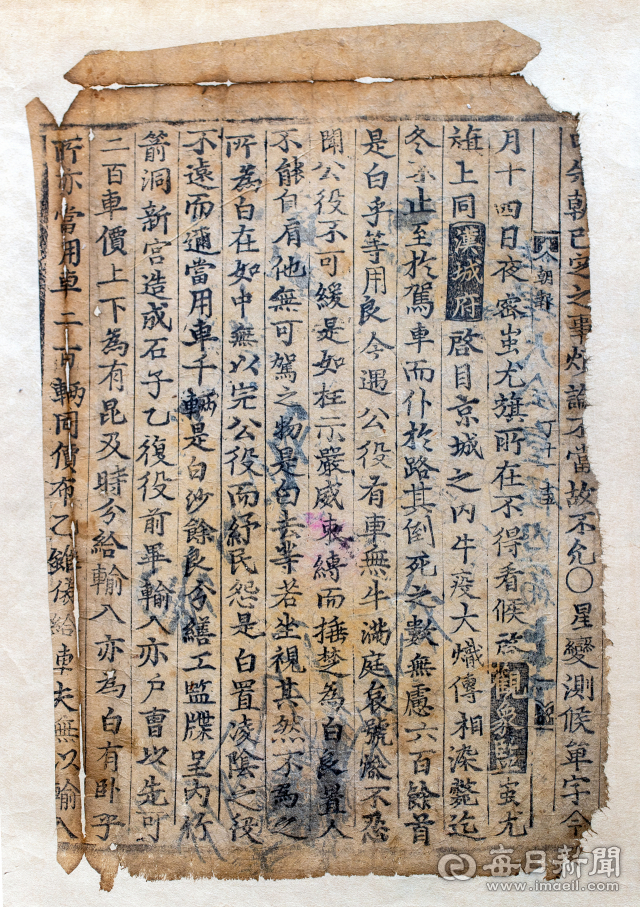 今朝已定之事煩論不當故不允○星變測候單字今
今朝報 丁十一
月十四日夜密蚩尤旗所在不得看候啓觀象監蚩尤
旗上同漢城府啓目京城之内牛疫大熾傳相染斃迄
冬不止至於駕車而仆於路其倒死之數無慮六百餘首
是白乎等用良今遇公役有車無牛滿庭哀號慘不忍
聞公役不可緩是如枉示嚴威束縛而捶楚為白良置人
不能自肩他無可駕之物是白去等若坐視其然不為之
所為白在如中無以完公役而紓民怨是白置凌陰之役
不遠而邇當用車千輛是白沙餘良分繕工監牒呈内行
箭洞新宮造成石子乙復役前畢輸入亦户曹以先可
二百車價上下為有昆及時分給輸入亦為白有卧乎
所亦當用車二百輛同價布乙雖備給車夫無以輸入
每日新聞
www.imaeil.com